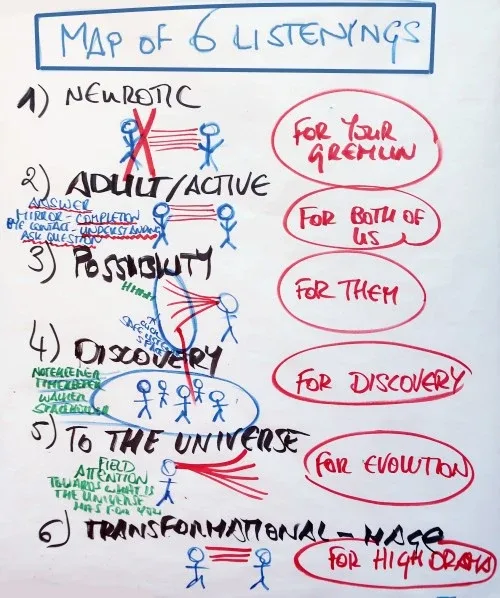 MAP OF 6 LISTENINGS
1) NEUROTIC
FOR YOUR
GREMLIN
2) ADULT/ACTIVE
ANSWER
MIRROR - COMPLETION
EYE CONTACT - UNDERSTANDING
ASK QUESTION
FOR BOTH OF
US
3) POSSIBILITY
FOR THEM
4) DISCOVERY
NOTETAKER
TIMEKEEPER
WALKER
SPACEHOLDER
FOR DISCOVERY
5) TO THE UNIVERSE
FIELD
ATTENTION
TOWARDS WHAT IS
THE UNIVERSE
HAS FOR YOU
FOR EVOLUTION
6) TRANSFORMATIONAL - MAGE
FOR HIGH DRAMA